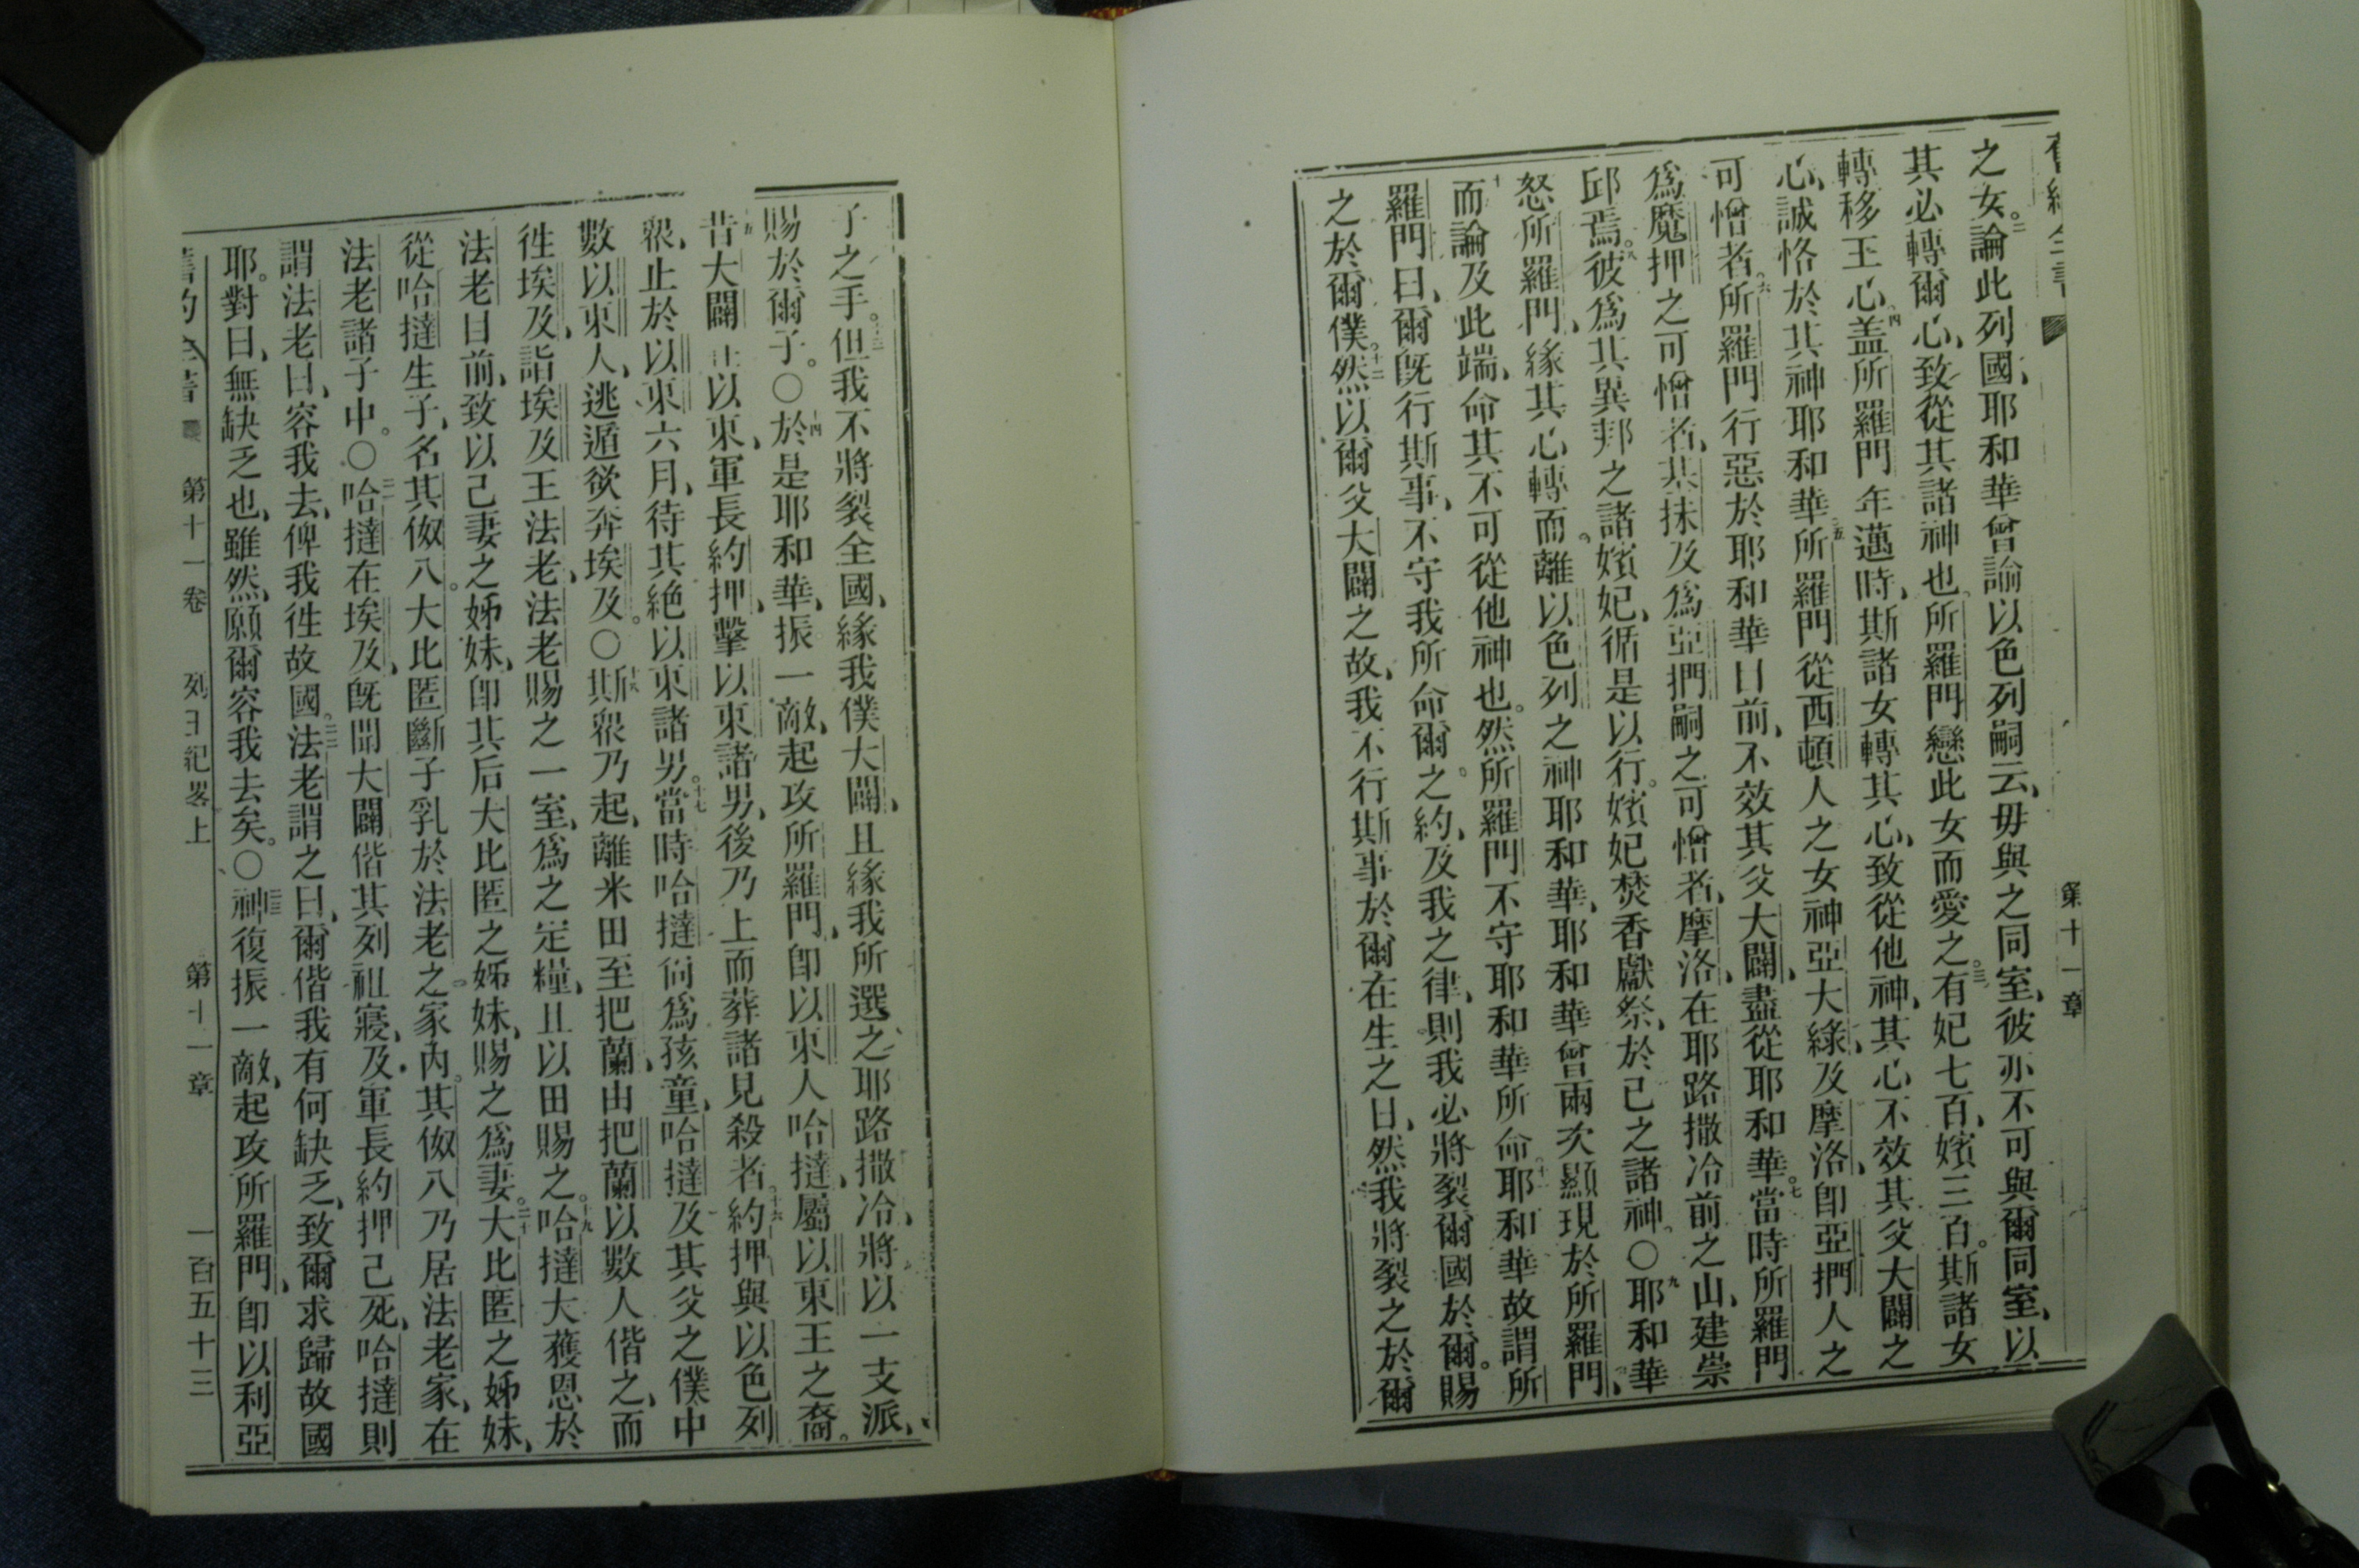 第十一章
之女論此列國耶和華曾諭以色列嗣云毋與之同室彼亦不可與爾同室以
其必轉爾心致從其諸神也所羅門戀此女而愛之有妃七百嬪三百斯諸女
轉移王心蓋所羅門年邁時斯諸女轉其心致從他神其心不效其父大闢之
心誠恪於其神耶和華所羅門從西頓人之女神亞大綠及摩洛卽亞捫人之
可憎者所羅門行惡於耶和華目前不效其父大闢盡從耶和華當時所羅門
爲魔押之可憎者基抹及爲亞捫嗣之可憎者摩洛在耶路撒冷前之山建崇
邱焉彼爲其異邦之諸嬪妃循是以行嬪妃焚香獻祭於己之諸神〇耶和華
怒所羅門緣其心轉而離以色列之神耶和華耶和華曾兩次顯現於所羅門
而論及此端命其不可從他神也然所羅門不守耶和華所命耶和華故謂所
羅門曰爾旣行斯事不守我所命爾之約及我之律則我必將裂爾國於爾賜
之於爾僕然以爾父大闢之故我不行斯事於爾在生之日然我將裂之於爾
子之手但我不將裂全國緣我僕大闢且緣我所選之耶路撒冷將以一支派
賜於爾子〇於是耶和華振一敵起攻所羅門卽以東人哈撻屬以東王之裔
昔大闢 以東軍長約押擊以東諸男後乃上而葬諸見殺者約押與以色列
衆止於以東六月待其絕以東諸男當時哈撻尙爲孩童哈撻及其父之僕中
數以東人逃遁欲奔埃及〇斯衆乃起離米田至把蘭由把蘭以數人偕之而
徃埃及詣埃及王法老法老賜之一室爲之定糧且以田賜之哈撻大獲恩於
法老目前致以己妻之姊妹卽其后大比匿之姊妹賜之爲妻大比匿之姊妹
從哈撻生子名其伮八大比匿斷子乳於法老之家內其伮八乃居法老家在
法老諸子中〇哈撻在埃及旣聞大闢偕其列祖寢及軍長約押己死哈撻則
謂法老曰容我去俾我徃故國法老謂之曰爾偕我有何缺乏致爾求歸故國
耶對曰無缺乏也雖然願爾容我去矣〇神復振一敵起攻所羅門卽以利亞
第十一卷 列王紀畧上 第十一章 一百五十三